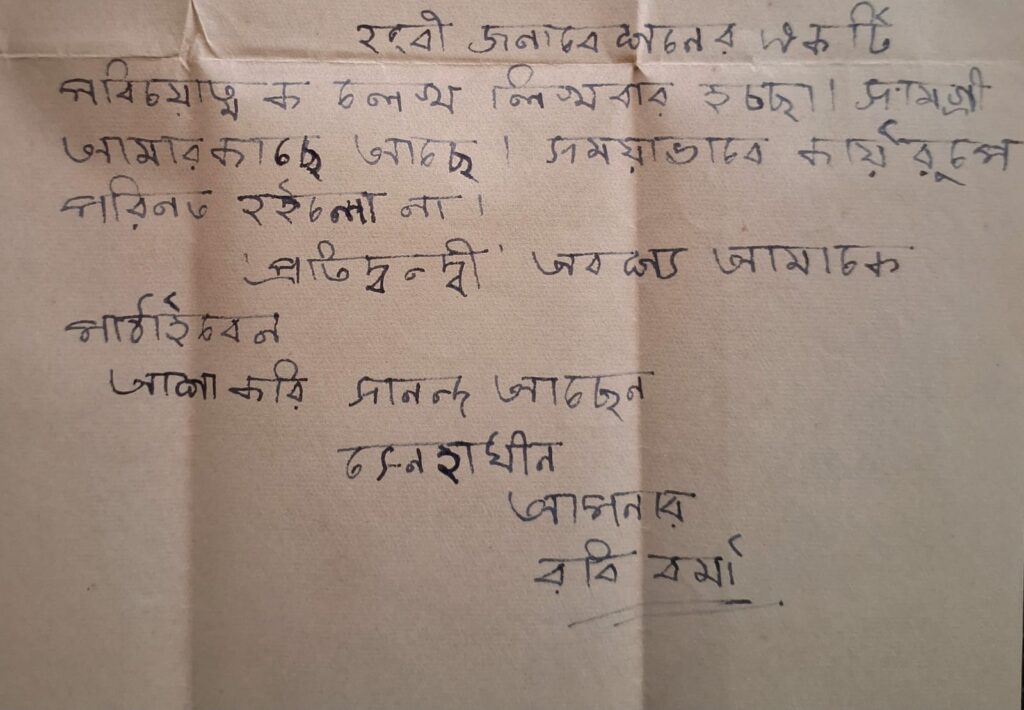 জনাবেশনের একটি
পরিচয়াত্মক লেখ লিখবার ইচ্ছা। সামগ্রী
আমার কাছে আছে। সময়াভাবে কার্য রূপে
পরিনত হইলো না।
'প্রতিদ্বন্দ্বী' অবশ্যে আমাকে
পাঠাইবেন
আশা করি সানন্দ আছেন
স্নেহাধীন
আপনার
রবি বর্মা